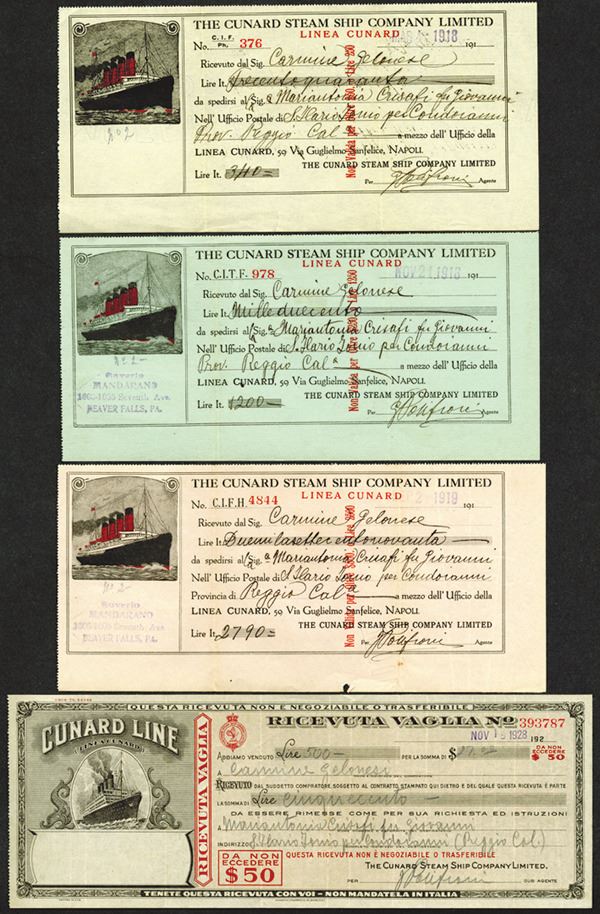 THE CUNARD STEAM SHIP COMPANY LIMITED
LINEA CUNARD
C. I. F.
Ph.
No. 376 1918 191
Ricevuto dal Sig. Carmine Gelonese
Lire It. trecentoquaranta
da spedirsi al Sig. a Mariantonia Crisafi fu Giovanni
Nell' Ufficio Postale di S. Ilario Jonio per Condoianni
Prov. Reggio Cal a a mezzo dell' Ufficio della
LINEA CUNARD, 59 Via Guglielmo Sanfelice, NAPOLI.
THE CUNARD STEAM SHIP COMPANY LIMITED
Lire It. 340=
Per Agente
No 2
Non Valida per oltre
THE CUNARD STEAM SHIP COMPANY LIMITED
LINEA CUNARD
No. C.I.T.F. 978 NOV 21 1918 191
Ricevuto dal Sig. Carmine Gelonese
Lire It. Milleduecento
da spedirsi al Sig. a Mariantonia Crisafi fu Giovanni
Nell' Ufficio Postale di S. Ilario Jonio per Condoianni
Prov. Reggio Cal a a mezzo dell' Ufficio della
LINEA CUNARD, 59 Via Guglielmo Sanfelice, NAPOLI.
THE CUNARD STEAM SHIP COMPANY LIMITED
Lire It. 1200=
Per Agente
No 2-
Saverio
MANDARANO
Seventh Ave.
BEAVER FALLS, PA.
Non Valida per oltre
THE CUNARD STEAM SHIP COMPANY LIMITED
LINEA CUNARD
No. C.I.F.H. 4844 2 1919 191
Ricevuto dal Sig. Carmine Gelonese
Lire It. Duemilasettecentonovanta
da spedirsi al Sig. a Mariantonia Crisafi fu Giovanni
Nell' Ufficio Postale di S. Ilario Jonio per Condoianni
Provincia di Reggio Cal a a mezzo dell' Ufficio della
LINEA CUNARD, 59 Via Guglielmo Sanfelice, NAPOLI.
THE CUNARD STEAM SHIP COMPANY LIMITED
Lire It. 2790=
Per Agente
No 2-
Saverio
MANDARANO
Seventh Ave.
BEAVER FALLS, PA.
QUESTA RICEVUTA NON E NEGOZIABILE O TRASFERIBILE
CUNARD LINE
(LINEA CUNARD)
RICEVUTA VAGLIA
RICEVUTA VAGLIA No 393787
NOV 1928 192
ABBIAMO VENDUTO Lire 500 — PER LA SOMMA DI $
DA NON
ECCEDERE
$ 50
A Carmine Gelonesi
RICEVUTO DAL SUDDETTO COMPRATORE SOGGETTO AL CONTRATTO STAMPATO QUI DIETRO E DEL QUALE QUESTA RICEVUTA È PARTE
LA SOMMA DI Lire Cinquecento -
DA ESSERE RIMESSE COME PER SUA RICHIESTA ED ISTRUZIONI
A Mariantonia Crisafi fu Giovanni
INDIRIZZO S. Ilario Jonio per Condoianni (Reggio Cal.)
DA NON
ECCEDERE
$50
QUESTA RICEVUTA NON È NEGOZIABILE O TRASFERIBILE
THE CUNARD STEAM SHIP COMPANY LIMITED.
PER SUB AGENTE
TENETE QUESTA RICEVUTA CON VOI - NON MANDATELA IN ITALIA